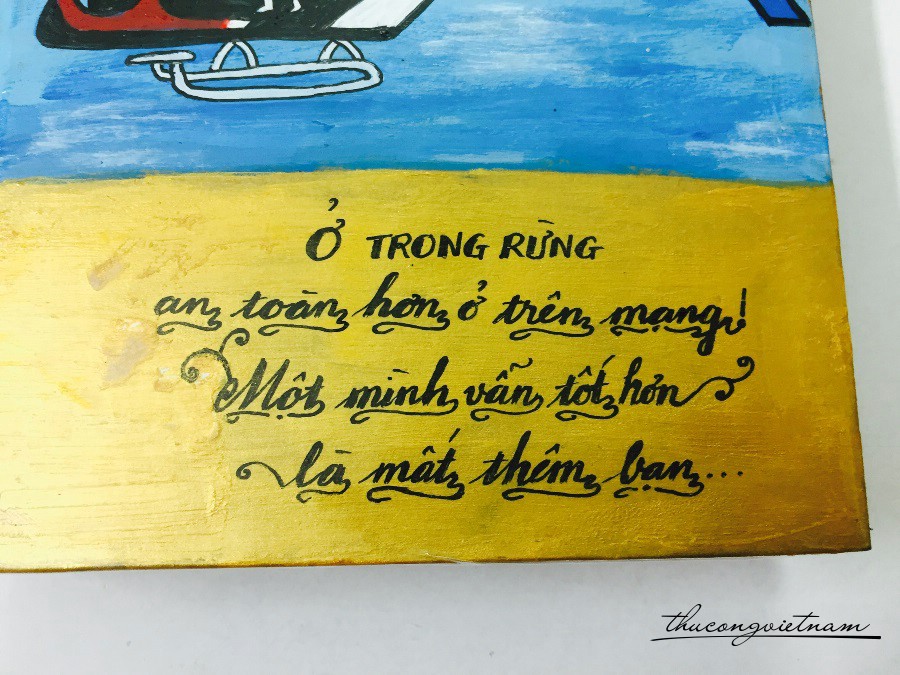 Ở TRONG RỪNG
an toàn hơn ở trên mạng!
Một mình vẫn tốt hơn
là mất thêm bạn...
thucongvietnam